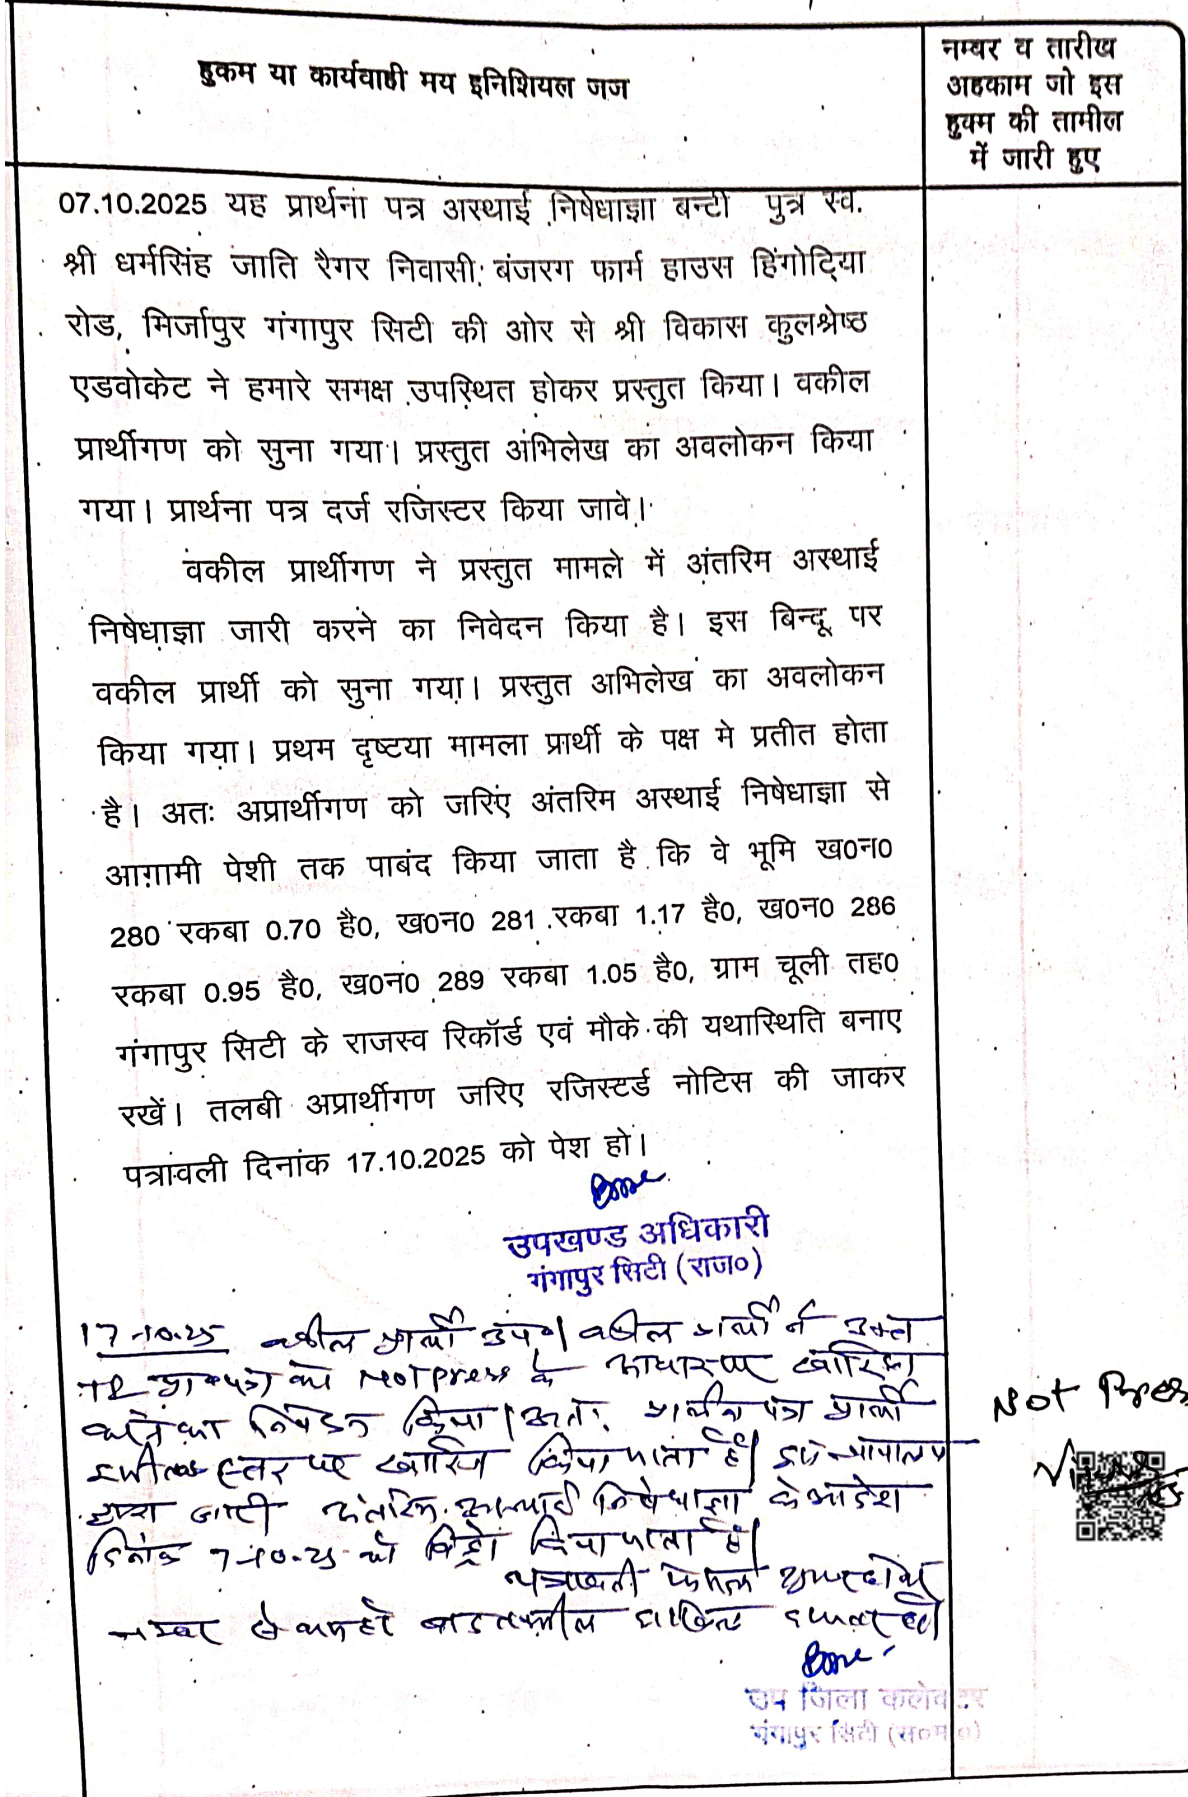 हुकम या कार्यवाही मय इनिशियल जज
नम्बर व तारीख
अहकाम जो इस
हुक्म की तामील
में जारी हुए
07.10.2025 यह प्रार्थना पत्र अस्थाई निषेधाज्ञा बन्टी पुत्र स्व.
श्री धर्मसिंह जाति रैगर निवासी: बंजरग फार्म हाउस हिंगोट्रिया
रोड, मिर्जापुर गंगापुर सिटी की ओर से श्री विकास कुलश्रेष्ठ
एडवोकेट ने हमारे समक्ष उपस्थित होकर प्रस्तुत किया। वकील
प्रार्थीगण को सुना गया। प्रस्तुत अभिलेख का अवलोकन किया
गया। प्रार्थना पत्र दर्ज रजिस्टर किया जावे।
वकील प्रार्थीगण ने प्रस्तुत मामले में अंतरिम अस्थाई
निषेधाज्ञा जारी करने का निवेदन किया है। इस बिन्दू पर
वकील प्रार्थी को सुना गया। प्रस्तुत अभिलेख का अवलोकन
किया गया। प्रथम दृष्टया मामला प्रार्थी के पक्ष मे प्रतीत होता
है। अतः अप्रार्थीगण को जरिए अंतरिम अस्थाई निषेधाज्ञा से
आगामी पेशी तक पाबंद किया जाता है कि वे भूमि ख0न0
280 रकबा 0.70 है0, ख0न0 281 रकबा 1.17 है0, ख0न0 286
रकबा 0.95 है0, ख0नं0 289 रकबा 1.05 है0, ग्राम चूली तह0
गंगापुर सिटी के राजस्व रिकॉर्ड एवं मौके की यथास्थिति बनाए
रखें। तलबी अप्रार्थीगण जरिए रजिस्टर्ड नोटिस की जाकर
पत्रावली दिनांक 17.10.2025 को पेश हो।
उपखण्ड अधिकारी
गंगापुर सिटी (राज०)
17-10-25 वकील प्रार्थी उप०। वकील प्रार्थी ने उक्त
TI प्रा०पत्र को Not press के आधार पर खारिज
करने का निवेदन किया। अतः प्रार्थना पत्र प्रार्थी
इसी स्तर पर खारिज किया जाता है।
द्वारा जारी अंतरिम अस्थाई निषेधाज्ञा के आदेश
दिनांक 7-10-25 को विड्रो किया जाता है।
पत्रावली फैसल शुमार होकर
नम्बर से कम हो बाद तकमील दाखिल दफ्तर हो।
Not Press
उप जिला कलेक्टर
गंगापुर सिटी (स०मा०)